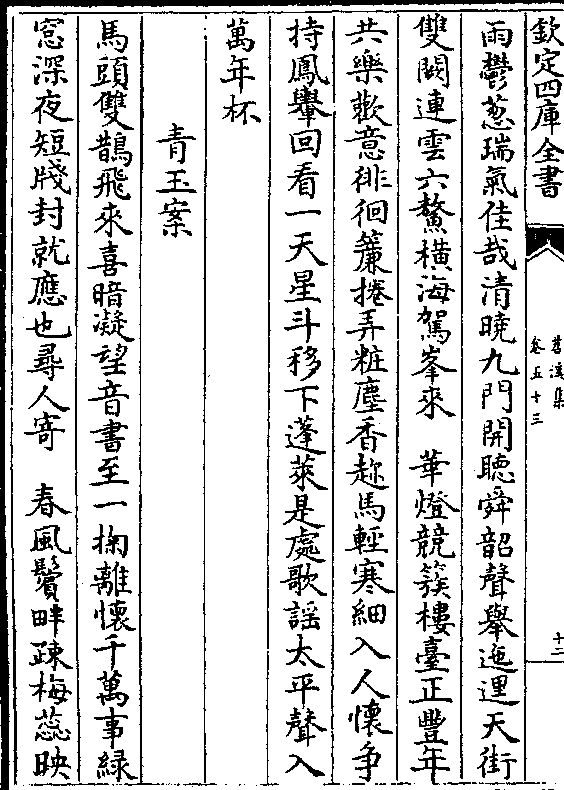 欽定四庫全書
苕溪集
卷五十三
十二
雨鬱葱瑞氣佳哉清曉九門開聴舜韶聲舉迤逦天街
雙闕連雲六鰲橫海駕峯來　華燈競簇樓臺正豐年
共樂歡意徘徊簾捲弄粧塵香趂馬輕寒細入人懷争
持鳳轝回看一天星斗移下蓬萊是處歌謡太平聲入
萬年杯
青玉案
馬頭雙鵲飛來喜暗凝望音書至一掬離懷千萬事緑
窓深夜短牋封就應也尋人寄　春風鬢畔疎梅蕊映